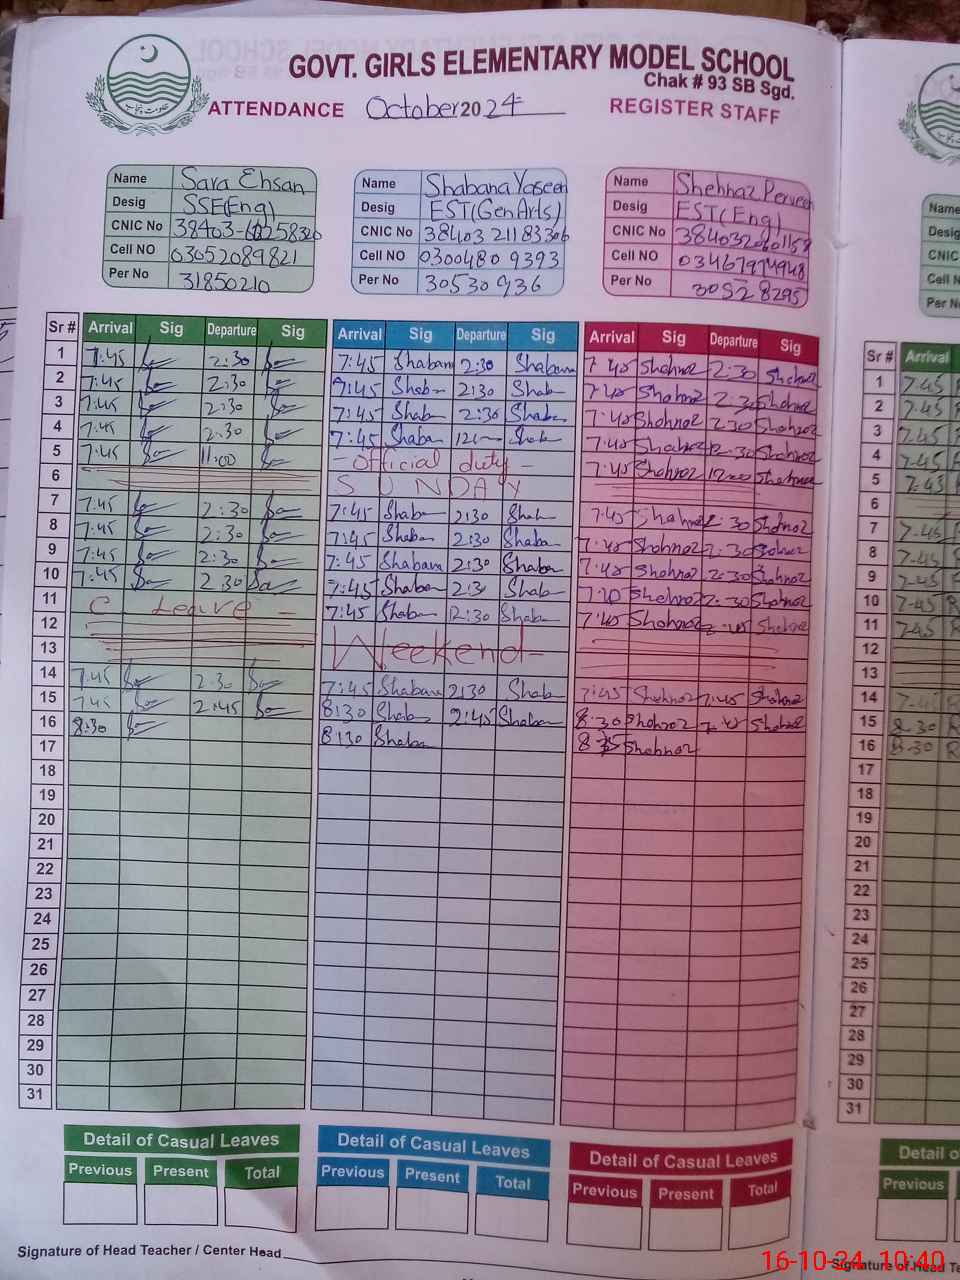 GOVT. GIRLS ELEMENTARY MODEL SCHOOL
Chak # 93 SB Sgd.
ATTENDANCE October 2024 REGISTER STAFF
Name Sara Ehsan
Desig SSE(Eng)
CNIC No
Cell NO 03052089821
Per No 31850210
Name Shabana Yaseen
Desig EST(Gen Arts)
CNIC No 38403 21183306
Cell NO 0300480 9393
Per No 30530936
Name Shehnaz Perveen
Desig EST(Eng)
CNIC No
Cell NO
Per No 30528295
Name
Desig
CNIC
Cell N
Per No
Sr # Arrival Sig Departure Sig Arrival Sig Departure Sig Arrival Sig Departure Sig Sr # Arrival
1 7:45 2:30 7:45 Shabana 2:30 Shabana 7:45 Shahnaz 2:30 Shahnaz 1 7:45
2 7:45 2:30 7:45 Shaba 2:30 Shaba 7:45 Shahnaz 2:30 Shahnaz 2 7:45
3 7:45 2:30 7:45 Shaba 2:30 Shaba 7:45 Shahnaz 2:30 Shahnaz 3 7:45
4 7:45 2:30 7:45 Shaba Shaba 7:45 Shahnaz 12:30 Shahnaz 4 7:45
5 7:45 11:00 - official duty - 7:45 Shahnaz 12:00 Shahnaz 5 7:45
6 SUNDAY 6
7 7:45 2:30 7:45 Shaba 2:30 Shaba 7:45 Shahnaz 2:30 Shahnaz 7 7:45
8 7:45 2:30 7:45 Shaba 2:30 Shaba 7:45 Shahnaz 2:30 Shahnaz 8 7:45
9 7:45 2:30 7:45 Shabana 2:30 Shaba 7:45 Shahnaz 2:30 Shahnaz 9 7:45
10 7:45 2:30 7:45 Shaba 2:3 Shaba Shahnaz 2:30 Shahnaz 10 7:45
11 C Leave - 7:45 Shaba 12:30 Shaba 7:45 Shahnaz Shahnaz 11 7:45
12 Weekend- 12
13 13
14 7:45 2:30 7:45 Shabana 2:30 Shab 7:45 Shahnaz 7:45 Shahnaz 14 7:45
15 7:45 2:45 8:30 Shab 2:45 Shaba 8:30 Shahnaz Shahnaz 15 8:30
16 8:30 8:30 Shaba Shahnaz 16 8:30
17 17
18 18
19 19
20 20
21 21
22 22
23 23
24 24
25 25
26 26
27 27
28 28
29 29
30 30
31 31
Detail of Casual Leaves Detail of Casual Leaves Detail of Casual Leaves Detail o
Previous Present Total Previous Present Total Previous Present Total Previous
Signature of Head Teacher / Center Head
Signature of Head Te
16-10-24 10:40